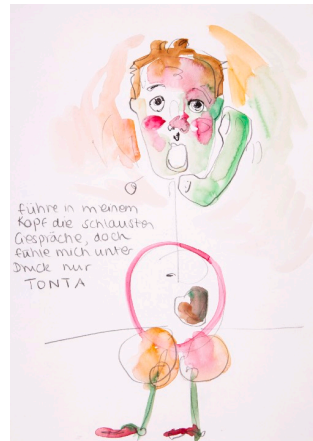 führe in meinem
Kopf die schlausten
Gespräche, doch
fühle mich unter
Druck nur
TONTA